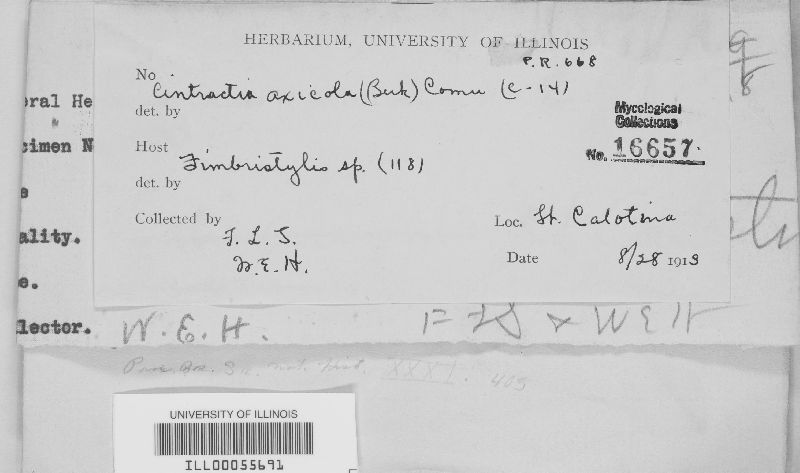 HERBARIUM, UNIVERSITY OF ILLINOIS
P.R. 668
No.
Cintractia axicola (Berk) Cornu (C-14)
det. by
Mycological
Collections
No. 16657.
Host
Fimbristylis sp. (118)
det. by
Collected by
F. L. S.
W. E. H.
Loc. St. Calotina
Date 8/28 1913
eral He
cimen N
e
ality.
e.
llector.
W. E. H.
F L S & W E H
Nat. Hist. XXXI. 403
UNIVERSITY OF ILLINOIS
ILL00055691